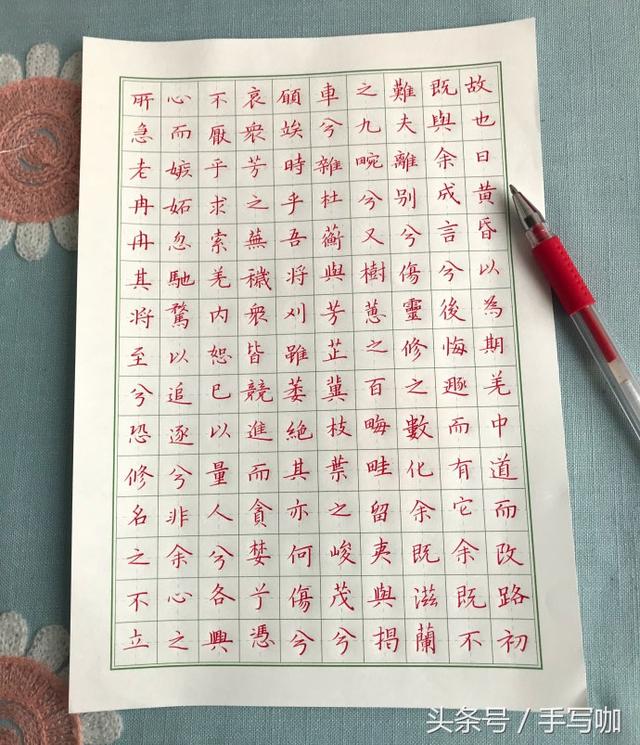 故也曰黄昏以為期羌中道而改路初
既與余成言兮後悔遯而有它余既不
難夫離别兮傷靈修之數化余既滋蘭
之九畹兮又樹蕙之百畮畦留夷與揭
車兮雜杜蘅與芳芷冀枝葉之峻茂兮
願竢時乎吾将刈雖萎絶其亦何傷兮
哀衆芳之蕪穢衆皆競進而貪婪兮憑
不厭乎求索羌内恕已以量人兮各興
心而嫉妬忽馳騖以追逐兮非余心之
所急老冉冉其将至兮恐修名之不立
头条号/手写咖